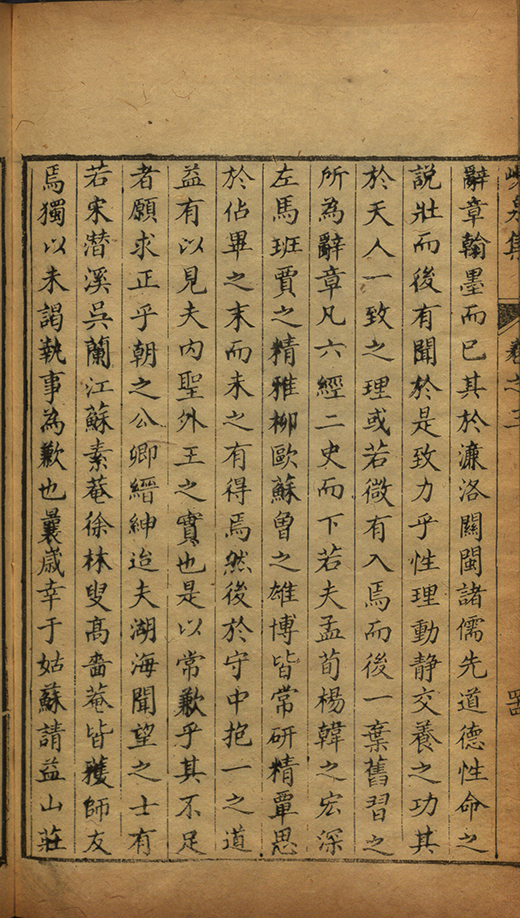 峴泉集
卷之三
辭章翰墨而已其於濂洛關閩諸儒先道德性命之
說壯而後有聞於是致力乎性理動靜交養之功其
於天人一致之理或若微有入焉而後一棄舊習之
所為辭章凡六經二史而下若夫孟荀楊韓之宏深
左馬班賈之精雅柳歐蘇曾之雄博皆常研精覃思
於佔畢之末而未之有得焉然後於守中抱一之道
益有以見夫内聖外王之實也是以常歉乎其不足
者願求正乎朝之公卿縉紳迨夫湖海聞望之士有
若宋潛溪吳蘭江蘇素菴徐林叟高嗇菴皆獲師友
焉獨以未謁執事為歉也曩歲幸于姑蘇請益山莊